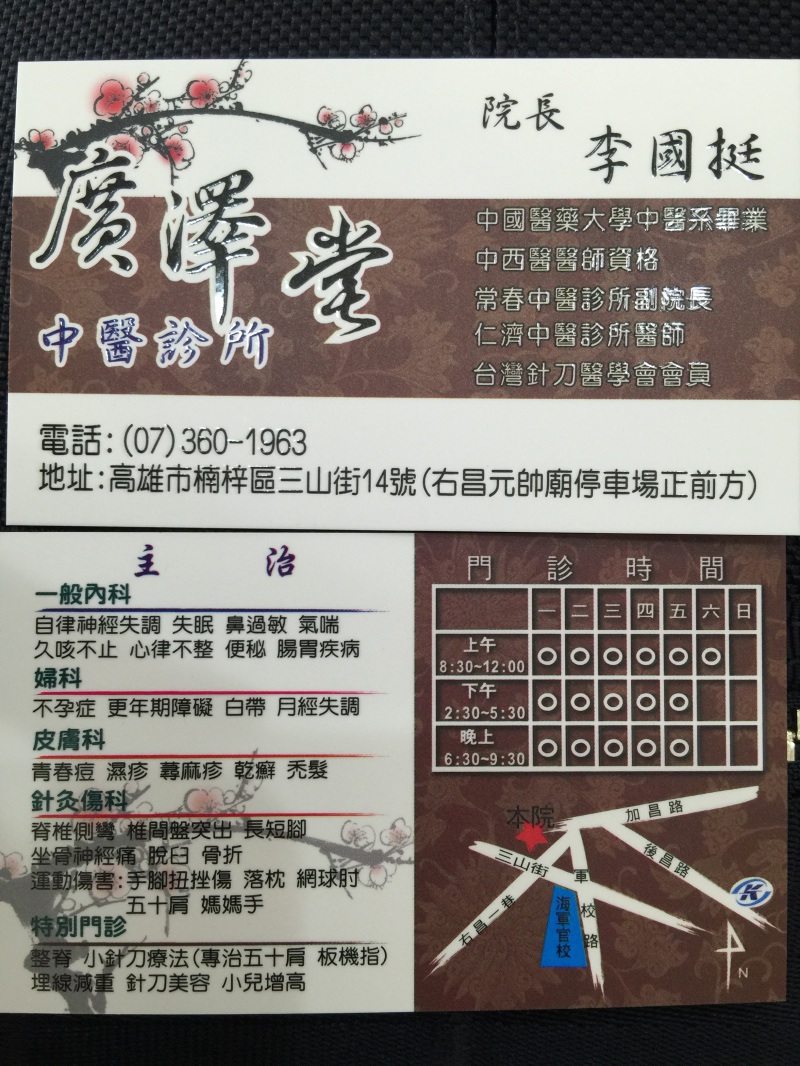 院長
李國挺
廣澤堂
中醫診所
中國醫藥大學中醫系畢業
中西醫醫師資格
常春中醫診所副院長
仁濟中醫診所醫師
台灣針刀醫學會會員
電話:(07)360-1963
地址:高雄市楠梓區三山街14號(右昌元帥廟停車場正前方)
主 治
一般內科
自律神經失調 失眠 鼻過敏 氣喘
久咳不止 心律不整 便秘 腸胃疾病
婦科
不孕症 更年期障礙 白帶 月經失調
皮膚科
青春痘 濕疹 蕁麻疹 乾癬 禿髮
針灸傷科
脊椎側彎 椎間盤突出 長短腳
坐骨神經痛 脫臼 骨折
運動傷害:手腳扭挫傷 落枕 網球肘
五十肩 媽媽手
特別門診
整脊 小針刀療法(專治五十肩 板機指)
埋線減重 針刀美容 小兒增高
門 診 時 間
一 二 三 四 五 六 日
上午
8:30~12:00 ○ ○ ○ ○ ○ ○
下午
2:30~5:30 ○ ○ ○ ○ ○
晚上
6:30~9:30 ○ ○ ○ ○ ○
本院
加昌路
三山街
後昌路
軍校路
海軍官校
右昌一巷
K
N